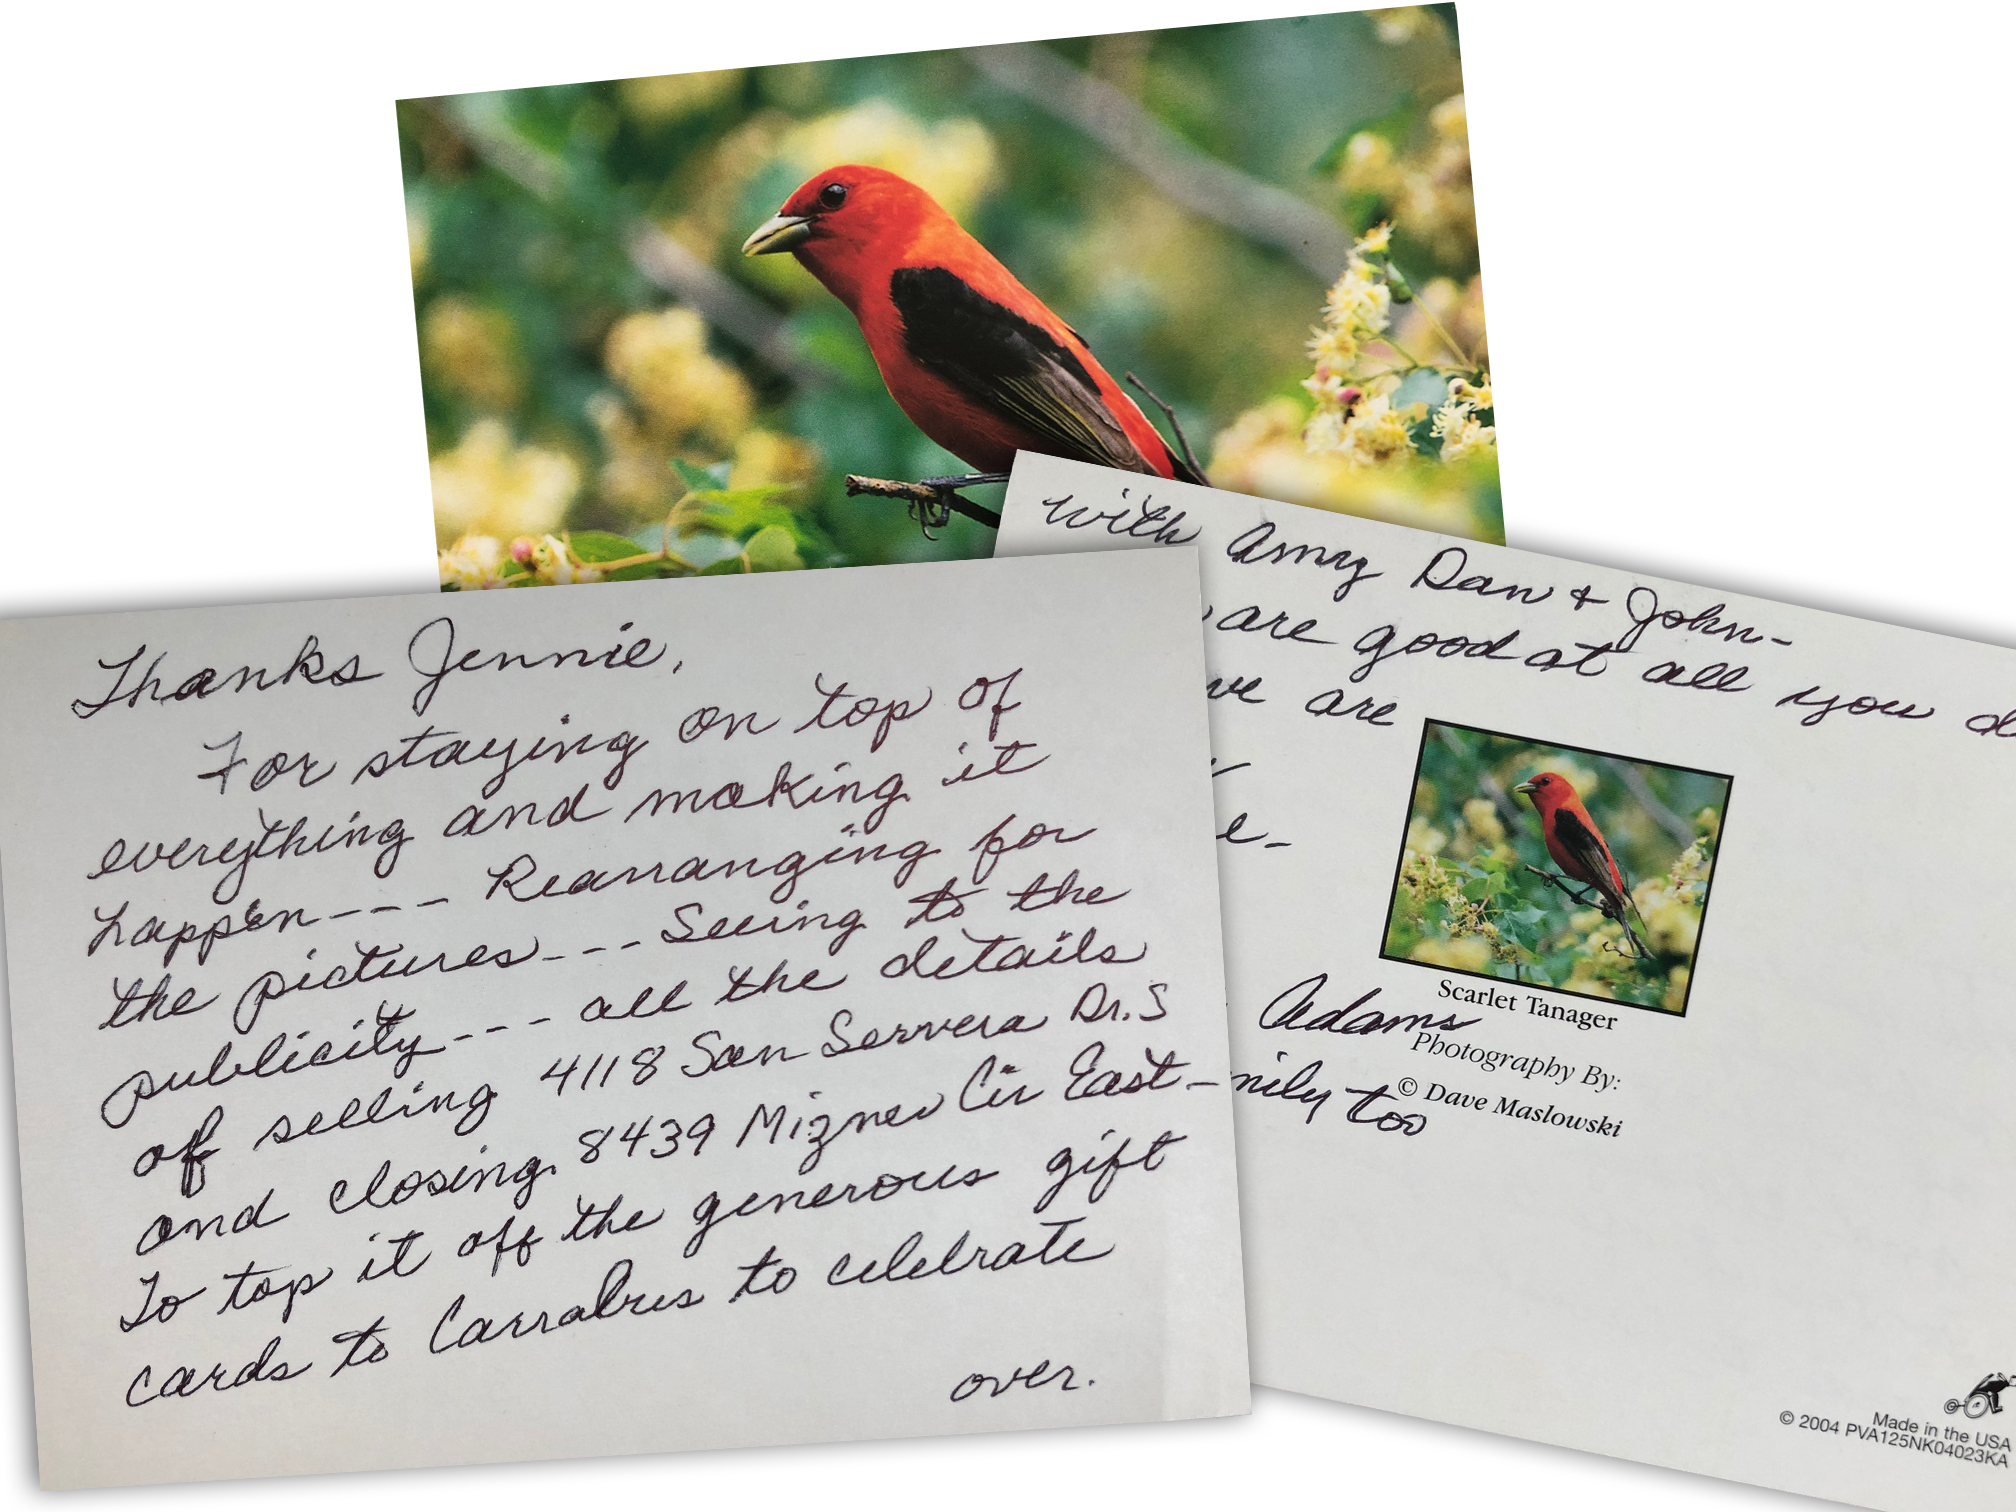 Thanks Jennie,
For staying on top of
everything and making it
happen--- Rearranging for
the pictures---Seeing to the
publicity--- all the details
of selling 4118 San Servera Dr. S
and closing 8439 Mizner Cir East-
To top it off the generous gift
cards to Carrabres to celebrate
over.
with Amy Dan & John-
are good at all you d
we are
e-
Adams
mily too
Scarlet Tanager
Photography By:
© Dave Maslowski
Made in the USA
© 2004 PVA125NK04023KA